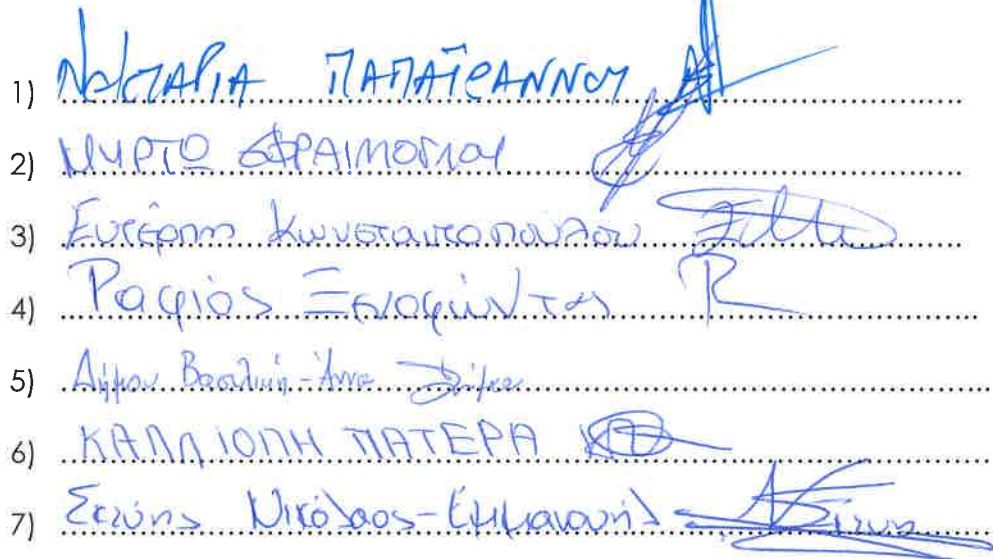 1) Νεκταρία ΠΑΠΑΪΩΑΝΝΟΥ
2) ΜΥΡΤΩ
3) Ευτέρπη Κωνσταντοπούλου
4) Ραφιός Ξενοφώντας
5) Δήμου Βασιλική-Άννα Δήμου
6) ΚΑΛΛΙΟΠΗ ΠΑΤΕΡΑ
7) Νικόλαος-Εμμανουήλ